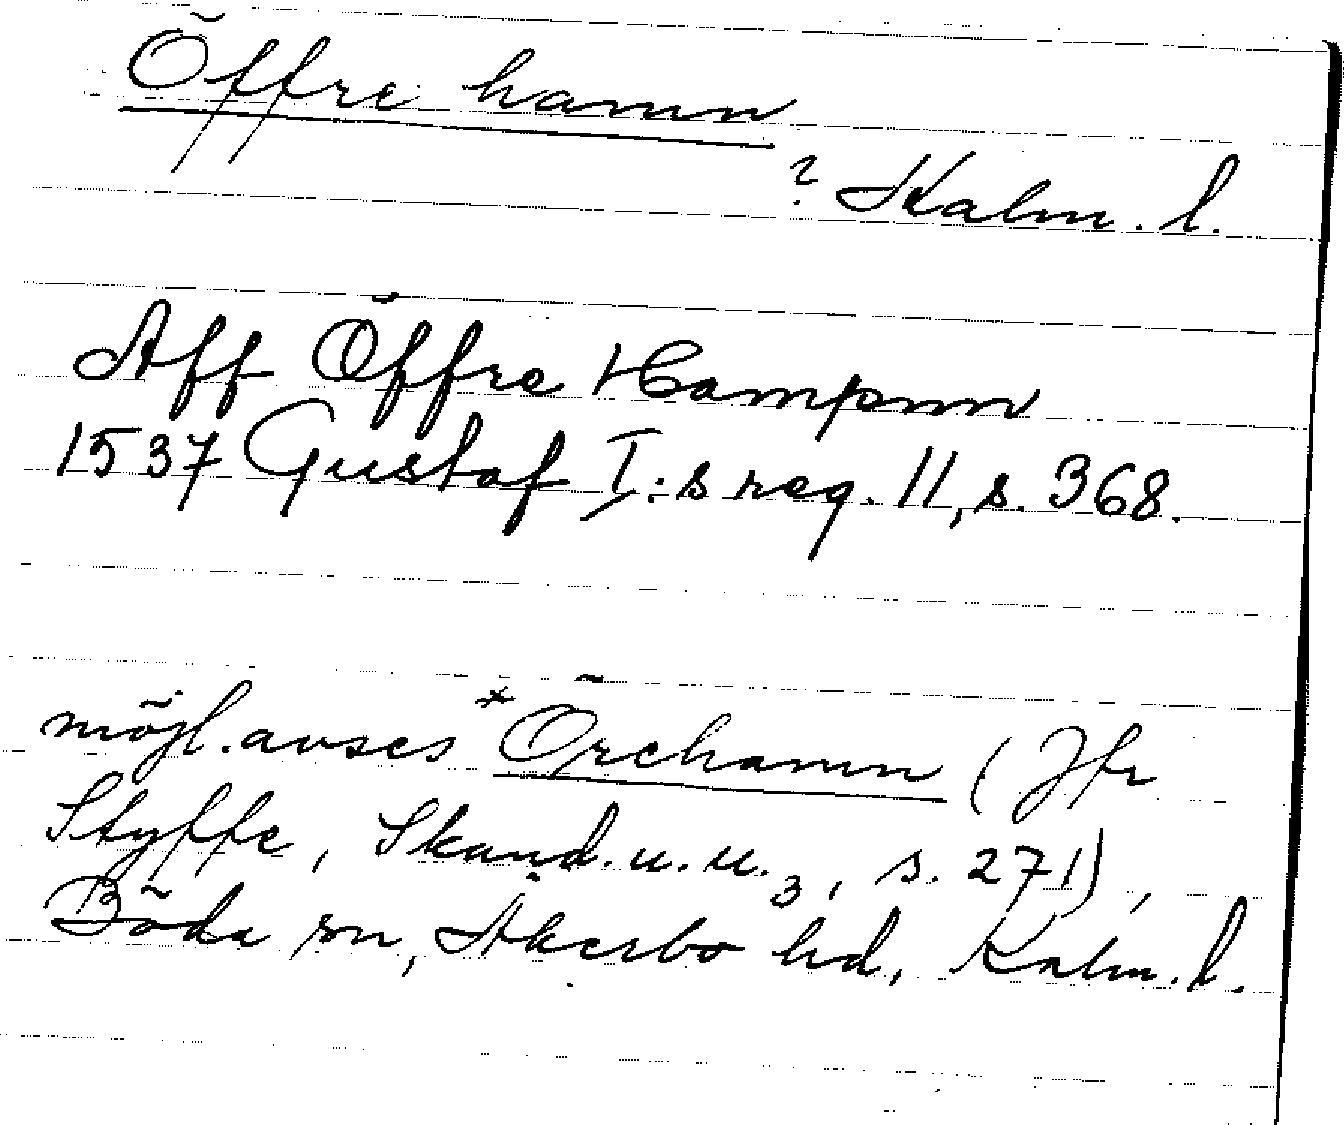 Öffre hamn
? Kalm. l.
Aff Öffre Hampnn
1537 Gustaf I:s reg. 11, s. 368.
möjl. avses *Örehamn (Jfr
Styffe, Skand. u. u. 3, s. 271),
Böda sn, Åkerbo hd, Kalm. l.